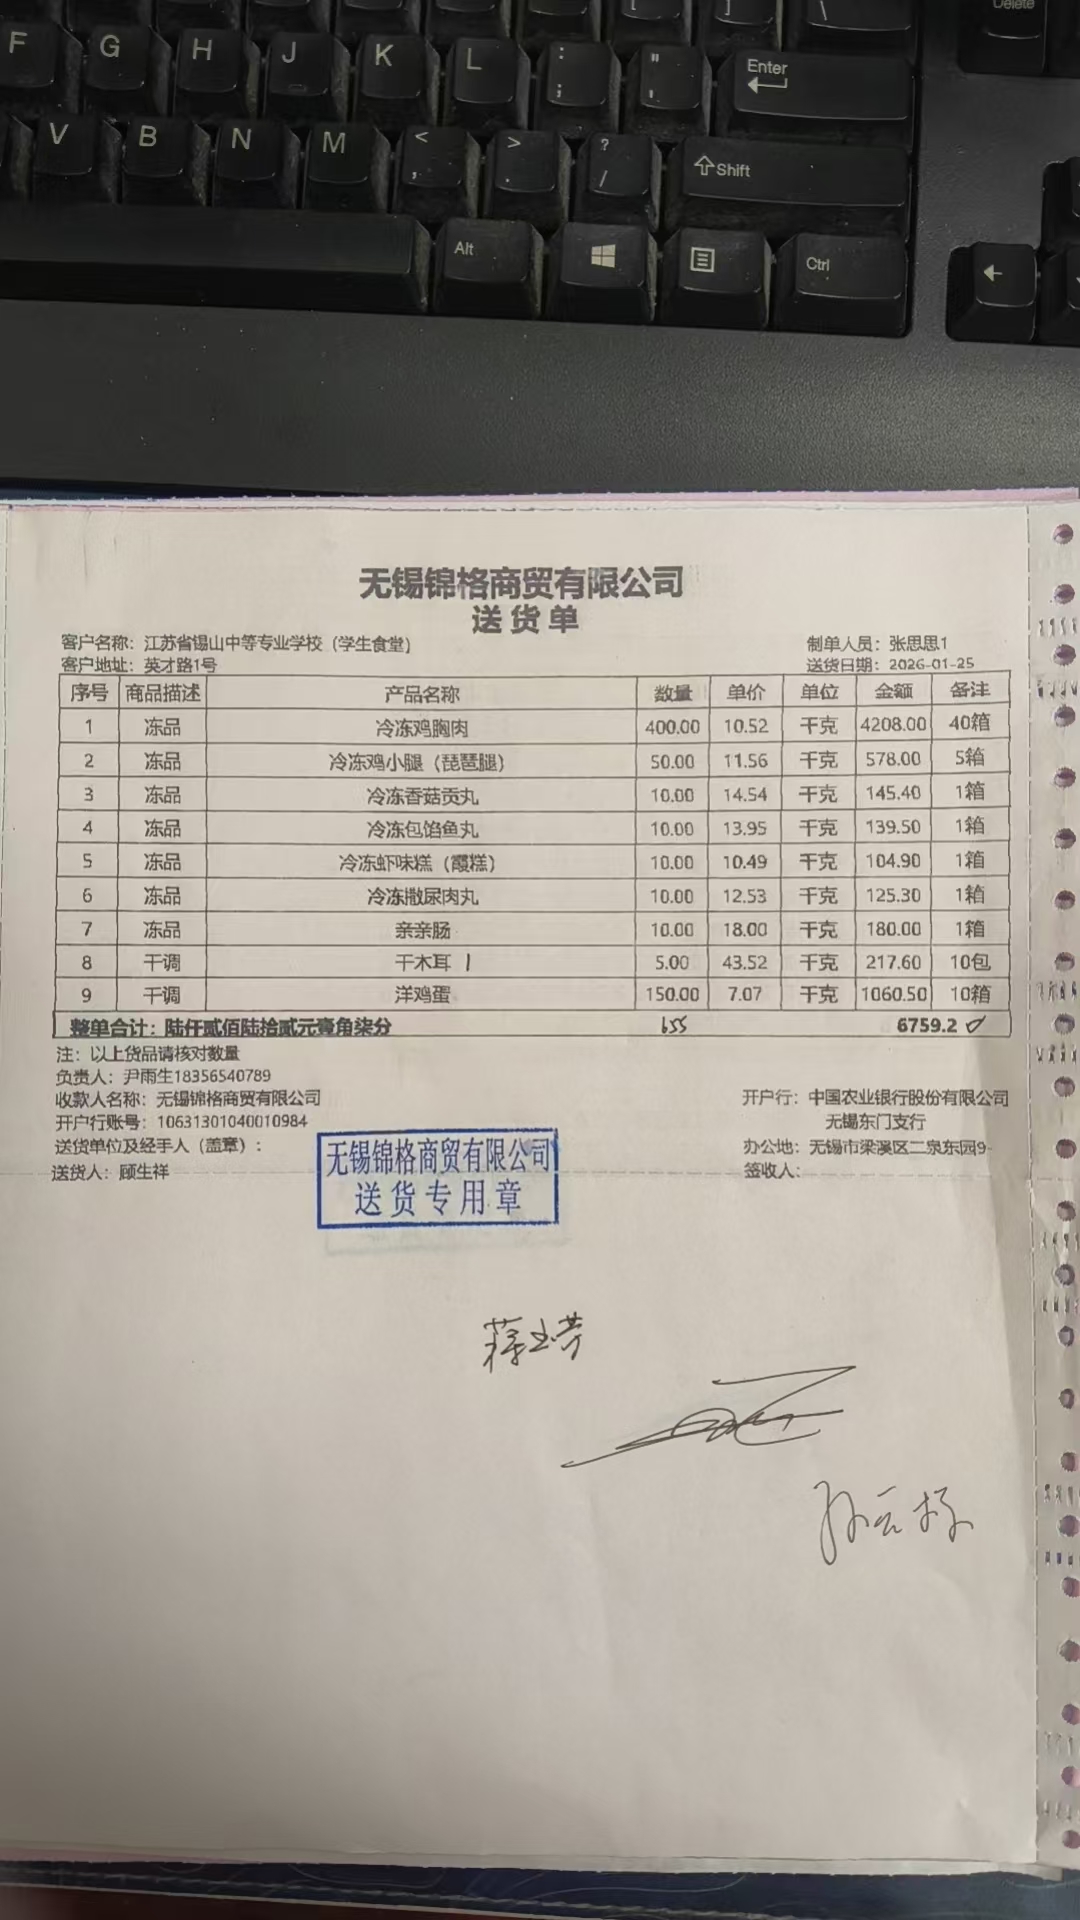 Delete
F G H J K L : ; " ' Enter
V B N M < , > . ? / Shift
Alt Ctrl
无锡锦格商贸有限公司
送货单
客户名称：江苏省锡山中等专业学校（学生食堂） 制单人员：张思思1
客户地址：英才路1号 送货日期：2026-01-25
序号 商品描述 产品名称 数量 单价 单位 金额 备注
1 冻品 冷冻鸡胸肉 400.00 10.52 千克 4208.00 40箱
2 冻品 冷冻鸡小腿（琵琶腿） 50.00 11.56 千克 578.00 5箱
3 冻品 冷冻香菇贡丸 10.00 14.54 千克 145.40 1箱
4 冻品 冷冻包馅鱼丸 10.00 13.95 千克 139.50 1箱
5 冻品 冷冻虾味糕（霞糕） 10.00 10.49 千克 104.90 1箱
6 冻品 冷冻撒尿肉丸 10.00 12.53 千克 125.30 1箱
7 冻品 亲亲肠 10.00 18.00 千克 180.00 1箱
8 干调 干木耳 5.00 43.52 千克 217.60 10包
9 干调 洋鸡蛋 150.00 7.07 千克 1060.50 10箱
整单合计：陆仟贰佰陆拾贰元壹角柒分 655 6759.2
注：以上货品请核对数量
负责人：尹雨生18356540789
收款人名称：无锡锦格商贸有限公司 开户行：中国农业银行股份有限公司
开户行账号：10631301040010984 无锡东门支行
送货单位及经手人（盖章）： 办公地：无锡市梁溪区二泉东园9-
送货人：顾生祥 签收人：
无锡锦格商贸有限公司
送货专用章